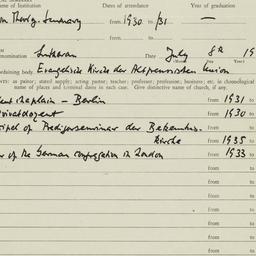 of Institution Dates of attendance Year of graduation
on Theolog. Seminary from 1930 to /31 —
from to
denomination Lutheran Date July 8th 19
(Month) (Day)
ordaining body Evangelische Kirche der Altpreussischen Union
ents: as pastor; stated supply; acting pastor; teacher; professor; business; etc. in chronological
name of places and terminal dates in each case. Give distinctive name of church, if any.
dent chaplain – Berlin from 1931
Privatdozent from 1930
cipal of Predigerseminar der Bekenntnis-
kirche from 1935
or of the German congregation in London from 1933
from
from
from
from
from
from